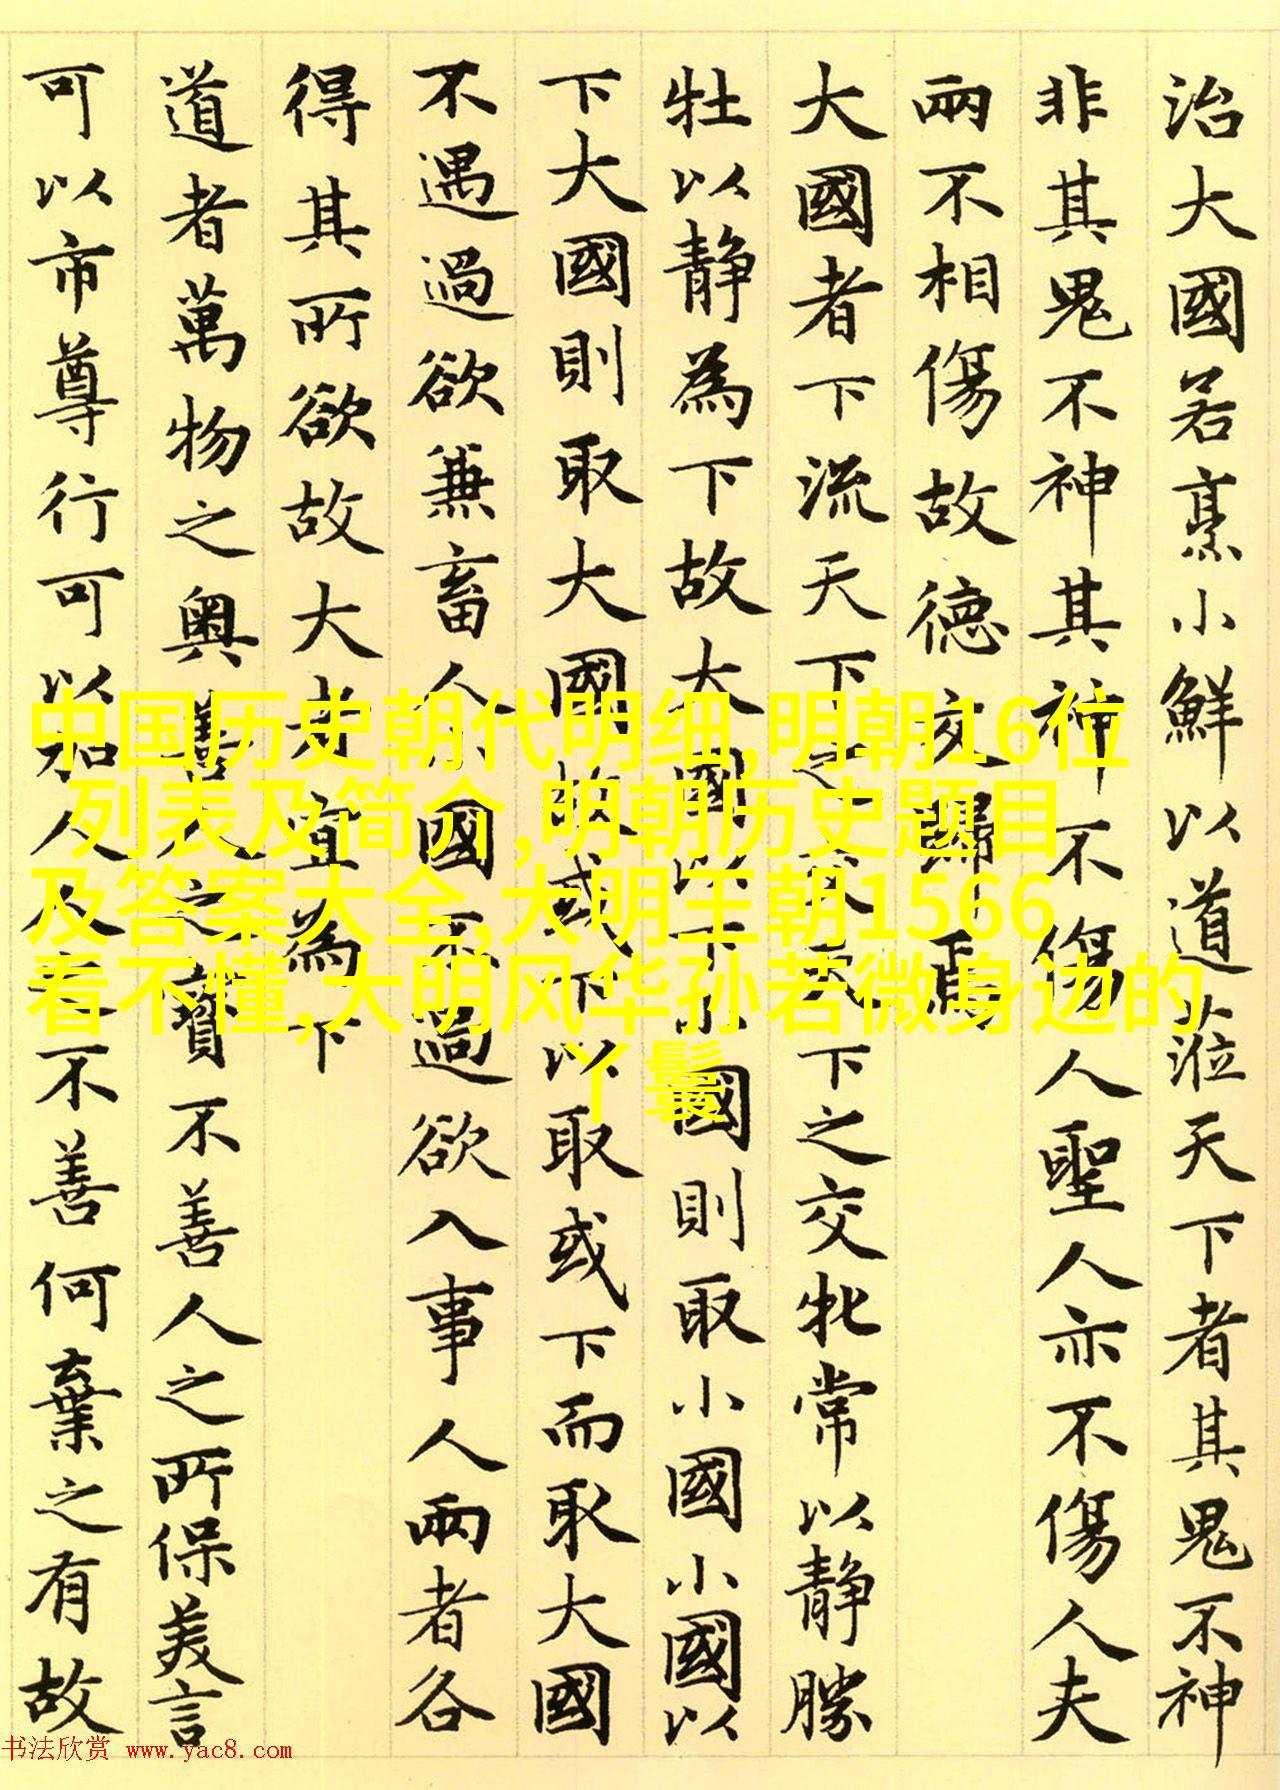 治大國若烹小鮮以道蒞天下者其鬼不神
非其鬼不神其神不傷人聖人亦不傷人夫
兩不相傷故德交歸焉
大國者下流天下之交天下之交牝常以靜勝
牡以靜為下故大國以下小國則取小國小國以
下大國則取大國故或下以取或下而取大國
不遇過欲兼畜人小國不過欲入事人兩者各
得其所欲故大者宜為下
道者萬物之奧善人之寶不善人之所保美言
可以市尊行可以加人人之不善何棄之有故
中国历史朝代明细,明朝16位
列表及简介,明朝历史题目
及答案大全,大明王朝1566
看不懂,大明风华孙若微身边的
丫鬟
书法欣赏 www.yac8.com